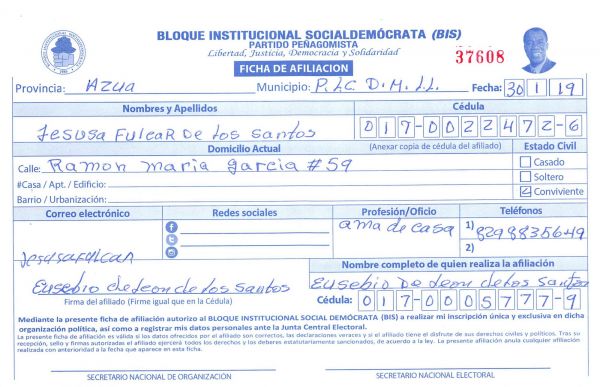 BLOQUE INSTITUCIONAL SOCIALDEMÓCRATA (BIS)
PARTIDO PEÑAGOMISTA
Libertad, Justicia, Democracia y Solidaridad
37608
FICHA DE AFILIACION
Provincia: AZUA Municipio: P.LC D.M.LL. Fecha: 30 1 19
Nombres y Apellidos Cédula
Jesusa Fulcar De los Santos 017-0022472-6
Domicilio Actual (Anexar copia de cédula del afiliado) Estado Civil
Calle: Ramon Maria Garcia #59 Casado
#Casa / Apt. / Edificio: Soltero
Barrio / Urbanización: Conviviente
Correo electrónico Redes sociales Profesión/Oficio Teléfonos
ama de casa 1) 8298835649
2)
Jesusa Fulcar
Nombre completo de quien realiza la afiliación
Eusebio de leon de los santos Eusebio De leon de los santos
Firma del afiliado (Firme igual que en la Cédula) Cédula: 017-0005777-9
Mediante la presente ficha de afiliación autorizo al BLOQUE INSTITUCIONAL SOCIAL DEMÓCRATA (BIS) a realizar mi inscripción única y exclusiva en dicha
organización política, así como a registrar mis datos personales ante la Junta Central Electoral.
La presente ficha de afiliación es válida si los datos ofrecidos por el afiliado son correctos, las declaraciones veraces y si el afiliado tiene el disfrute de sus derechos civiles y políticos. Tras su
recepción, sello y firmas autorizadas el afiliado ejercerá todos los derechos y los deberes estatutariamente sancionados, de acuerdo a la ley. La presente afiliación anula cualquier afiliación
realizada con anterioridad a la fecha que aparece en esta ficha.
SECRETARIO NACIONAL DE ORGANIZACIÓN SECRETARIO NACIONAL ELECTORAL